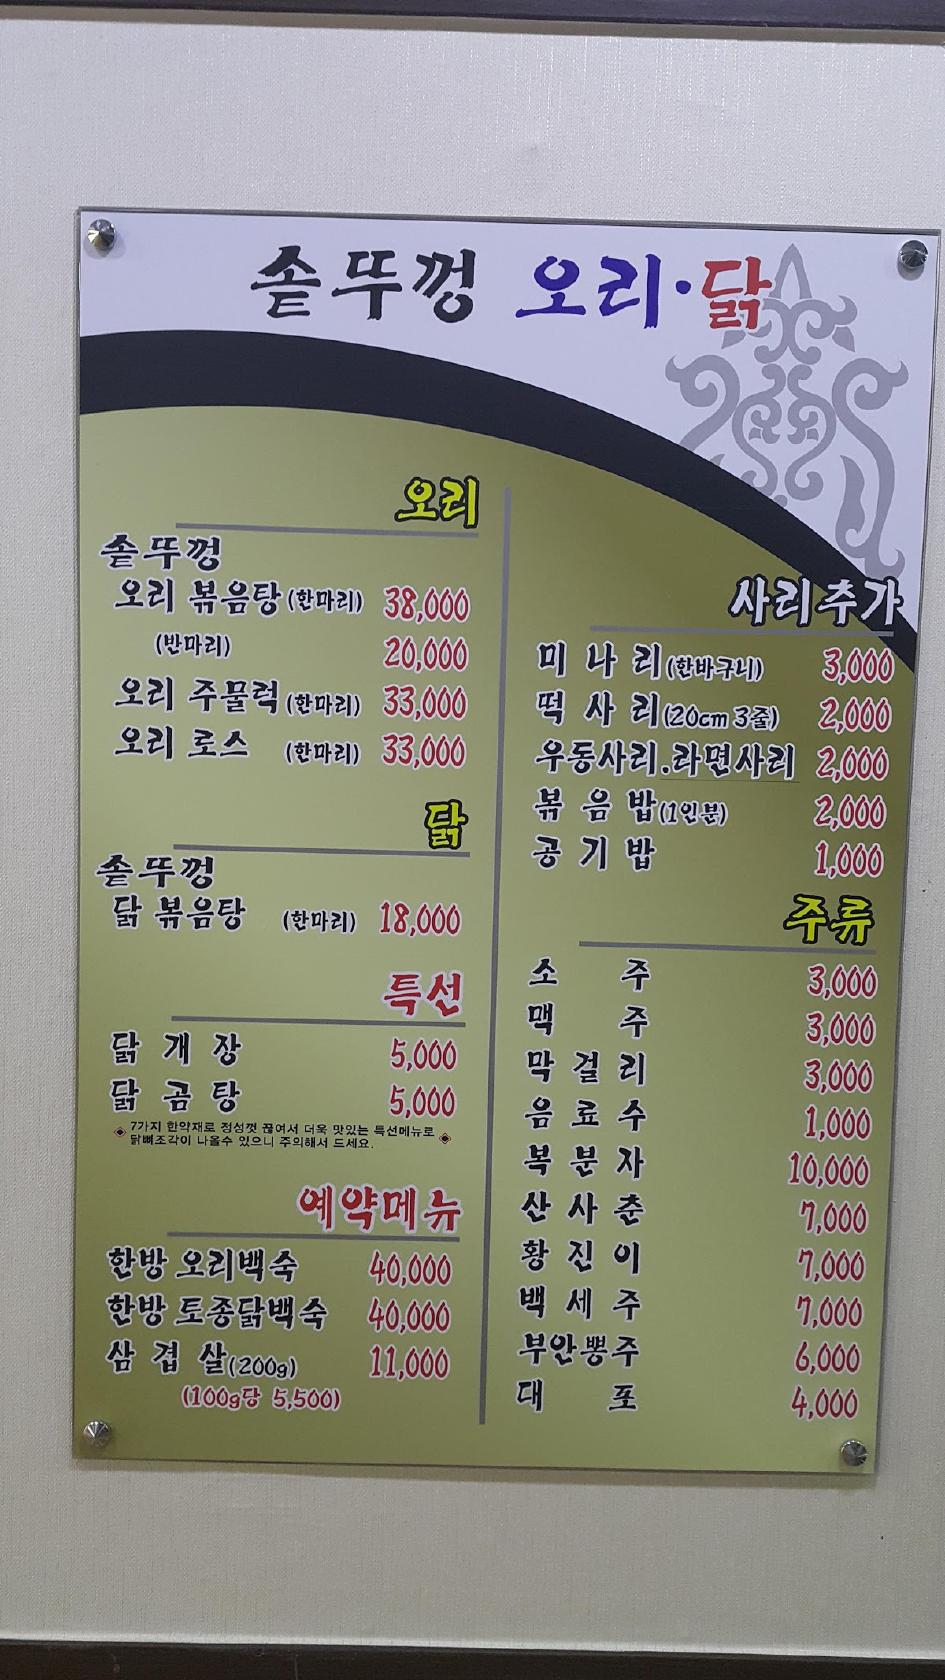 솥뚜껑 오리·닭
오리
솥뚜껑
오리 볶음탕(한마리) 38,000
(반마리) 20,000
오리 주물럭(한마리) 33,000
오리 로스 (한마리) 33,000
닭
솥뚜껑
닭 볶음탕 (한마리) 18,000
특선
닭 개 장 5,000
닭 곰 탕 5,000
7가지 한약재로 정성껏 끊여서 더욱 맛있는 특선메뉴로
닭뼈조각이 나올수 있으니 주의해서 드세요.
예약메뉴
한방 오리백숙 40,000
한방 토종닭백숙 40,000
삼 겹 살(200g) 11,000
(100g당 5,500)
사리추가
미 나 리(한바구니) 3,000
떡 사 리(20cm 3줄) 2,000
우동사리.라면사리 2,000
볶 음 밥(1인분) 2,000
공 기 밥 1,000
주류
소 주 3,000
맥 주 3,000
막 걸 리 3,000
음 료 수 1,000
복 분 자 10,000
산 사 춘 7,000
황 진 이 7,000
백 세 주 7,000
부안뽕주 6,000
대 포 4,000